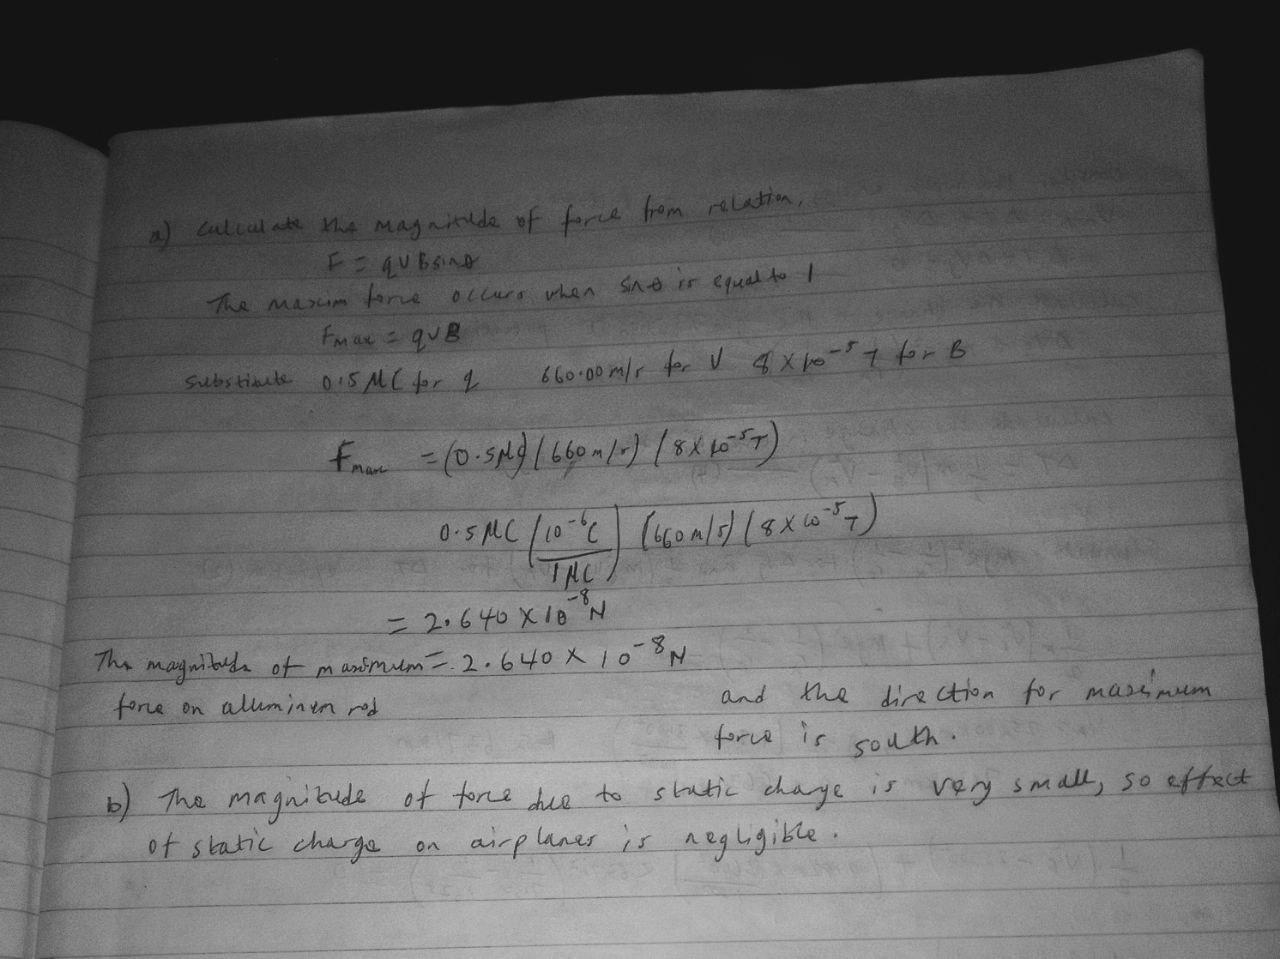 a) calculate the magnitude of force from relation,
F = qVBsinθ
The maxim force occurs when sinθ is equal to 1
Fmax = qVB
Substitute 0.5 MC for q 660.00 m/s for V 8 X 10⁻⁵ T for B
Fmax = (0.5MC) (660 m/s) (8 X 10⁻⁵T)
0.5 MC (10⁻⁶C / 1MC) (660 m/s) (8 X 10⁻⁵T)
= 2.640 X 10⁻⁸N
The magnitude of maximum = 2.640 X 10⁻⁸N
force on alluminum rod
and the direction for maximum
force is south.
b) The magnitude of force due to static charge is very small, so effect
of static charge on airplanes is negligible.